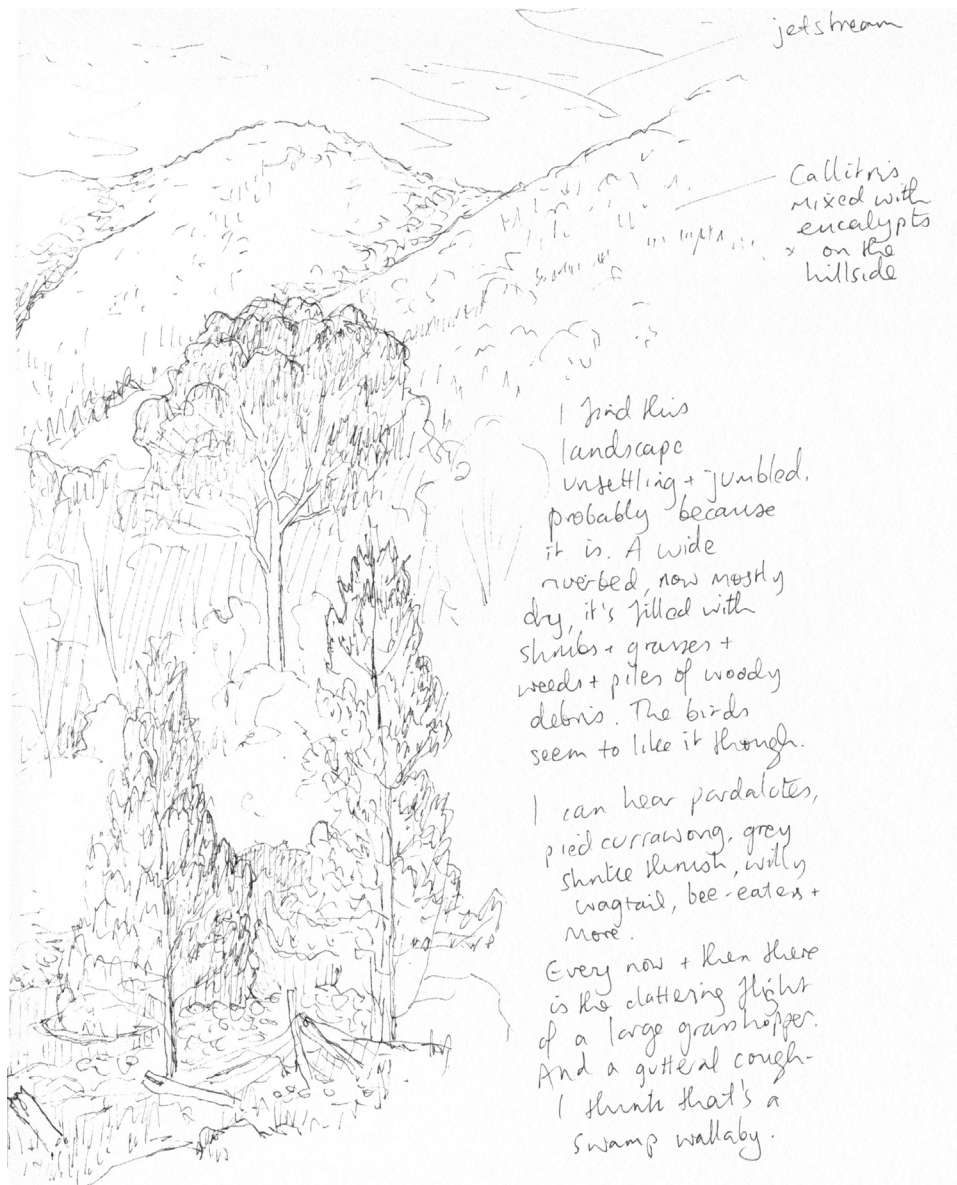 jetstream
Callitris
mixed with
eucalypts
x on the
hillside
I find this
landscape
unsettling + jumbled,
probably because
it is. A wide
riverbed, now mostly
dry, it's filled with
shrubs + grasses +
weeds + piles of woody
debris. The birds
seem to like it though.
I can hear pardalotes,
pied currawong, grey
shrike thrush, willy
wagtail, bee-eaters +
more.
Every now + then there
is the clattering flight
of a large grasshopper.
And a gutteral cough -
I think that's a
swamp wallaby.